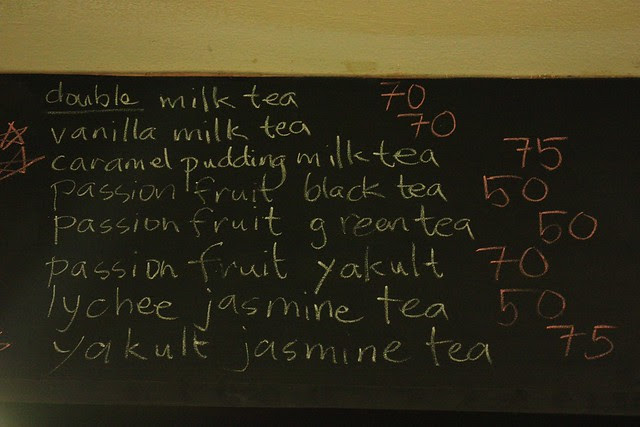 double milk tea 70
vanilla milk tea 70
caramel pudding milk tea 75
passion fruit black tea 50
passion fruit green tea 50
passion fruit yakult 70
lychee jasmine tea 50
yakult jasmine tea 75